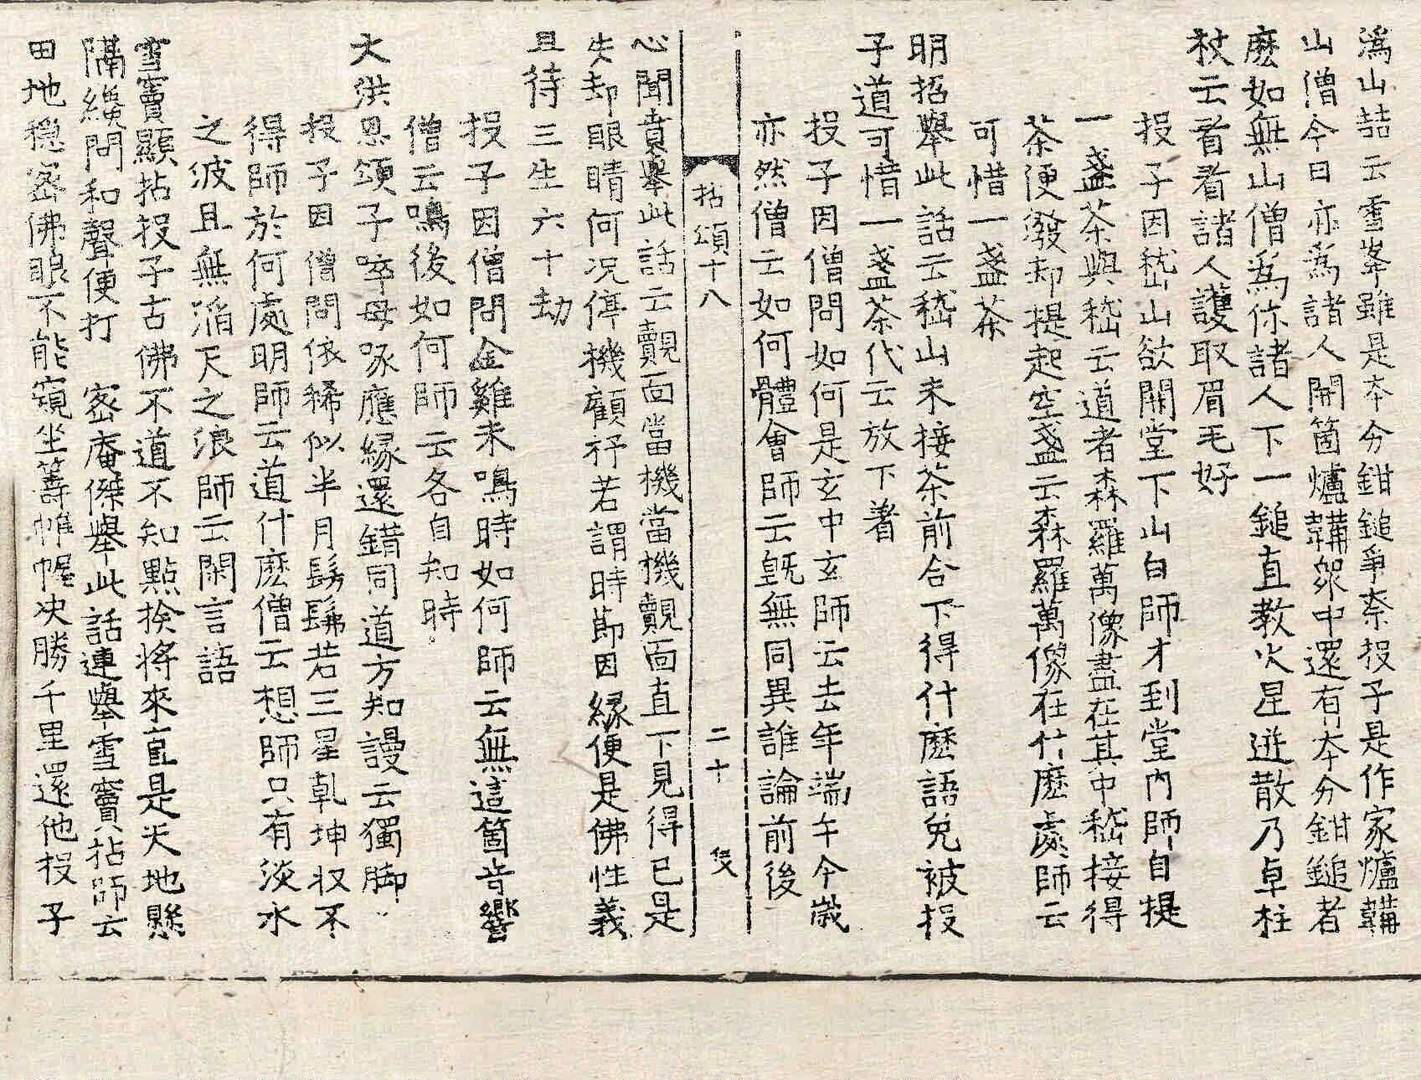 潙山喆云雪峯雖是本分鉗鎚爭柰投子是作家爐鞴
山僧今日亦爲諸人開箇爐鞴衆中還有本分鉗鎚者
麽如無山僧爲你諸人下一鎚直教火星迸散乃卓柱
杖云看看諸人護取眉毛好
投子因嵇山欲開堂下山白師才到堂內師自提
一盞茶與嵇云道者森羅萬像盡在其中嵇接得
茶便潑却提起空盞云森羅萬像在什麽處師云
可惜一盞茶
明招擧此話云嵇山未接茶前合下得什麽語免被投
子道可惜一盞茶代云放下著
投子因僧問如何是玄中玄師云去年端午今歲
亦然僧云如何體會師云旣無同異誰論前後
拈頌十八 二十
心聞賁擧此話云覿面當機當機覿面直下見得已是
失却眼睛何况停機顧佇若謂時節因緣便是佛性義
且待三生六十劫
投子因僧問金雞未鳴時如何師云無這箇音響
僧云鳴後如何師云各自知時
大洪恩頌子啐母啄應緣還錯同道方知謾云獨脚
投子因僧問依稀似半月髣髴若三星乾坤收不
得師於何處明師云道什麽僧云想師只有淡水
之波且無滔天之浪師云閑言語
雪竇顯拈投子古佛不道不知點撿將來直是天地懸
隔纔問和聲便打 密庵傑擧此話連擧雪竇拈師云
田地穩密佛眼不能窺坐籌帷幄决勝千里還他投子